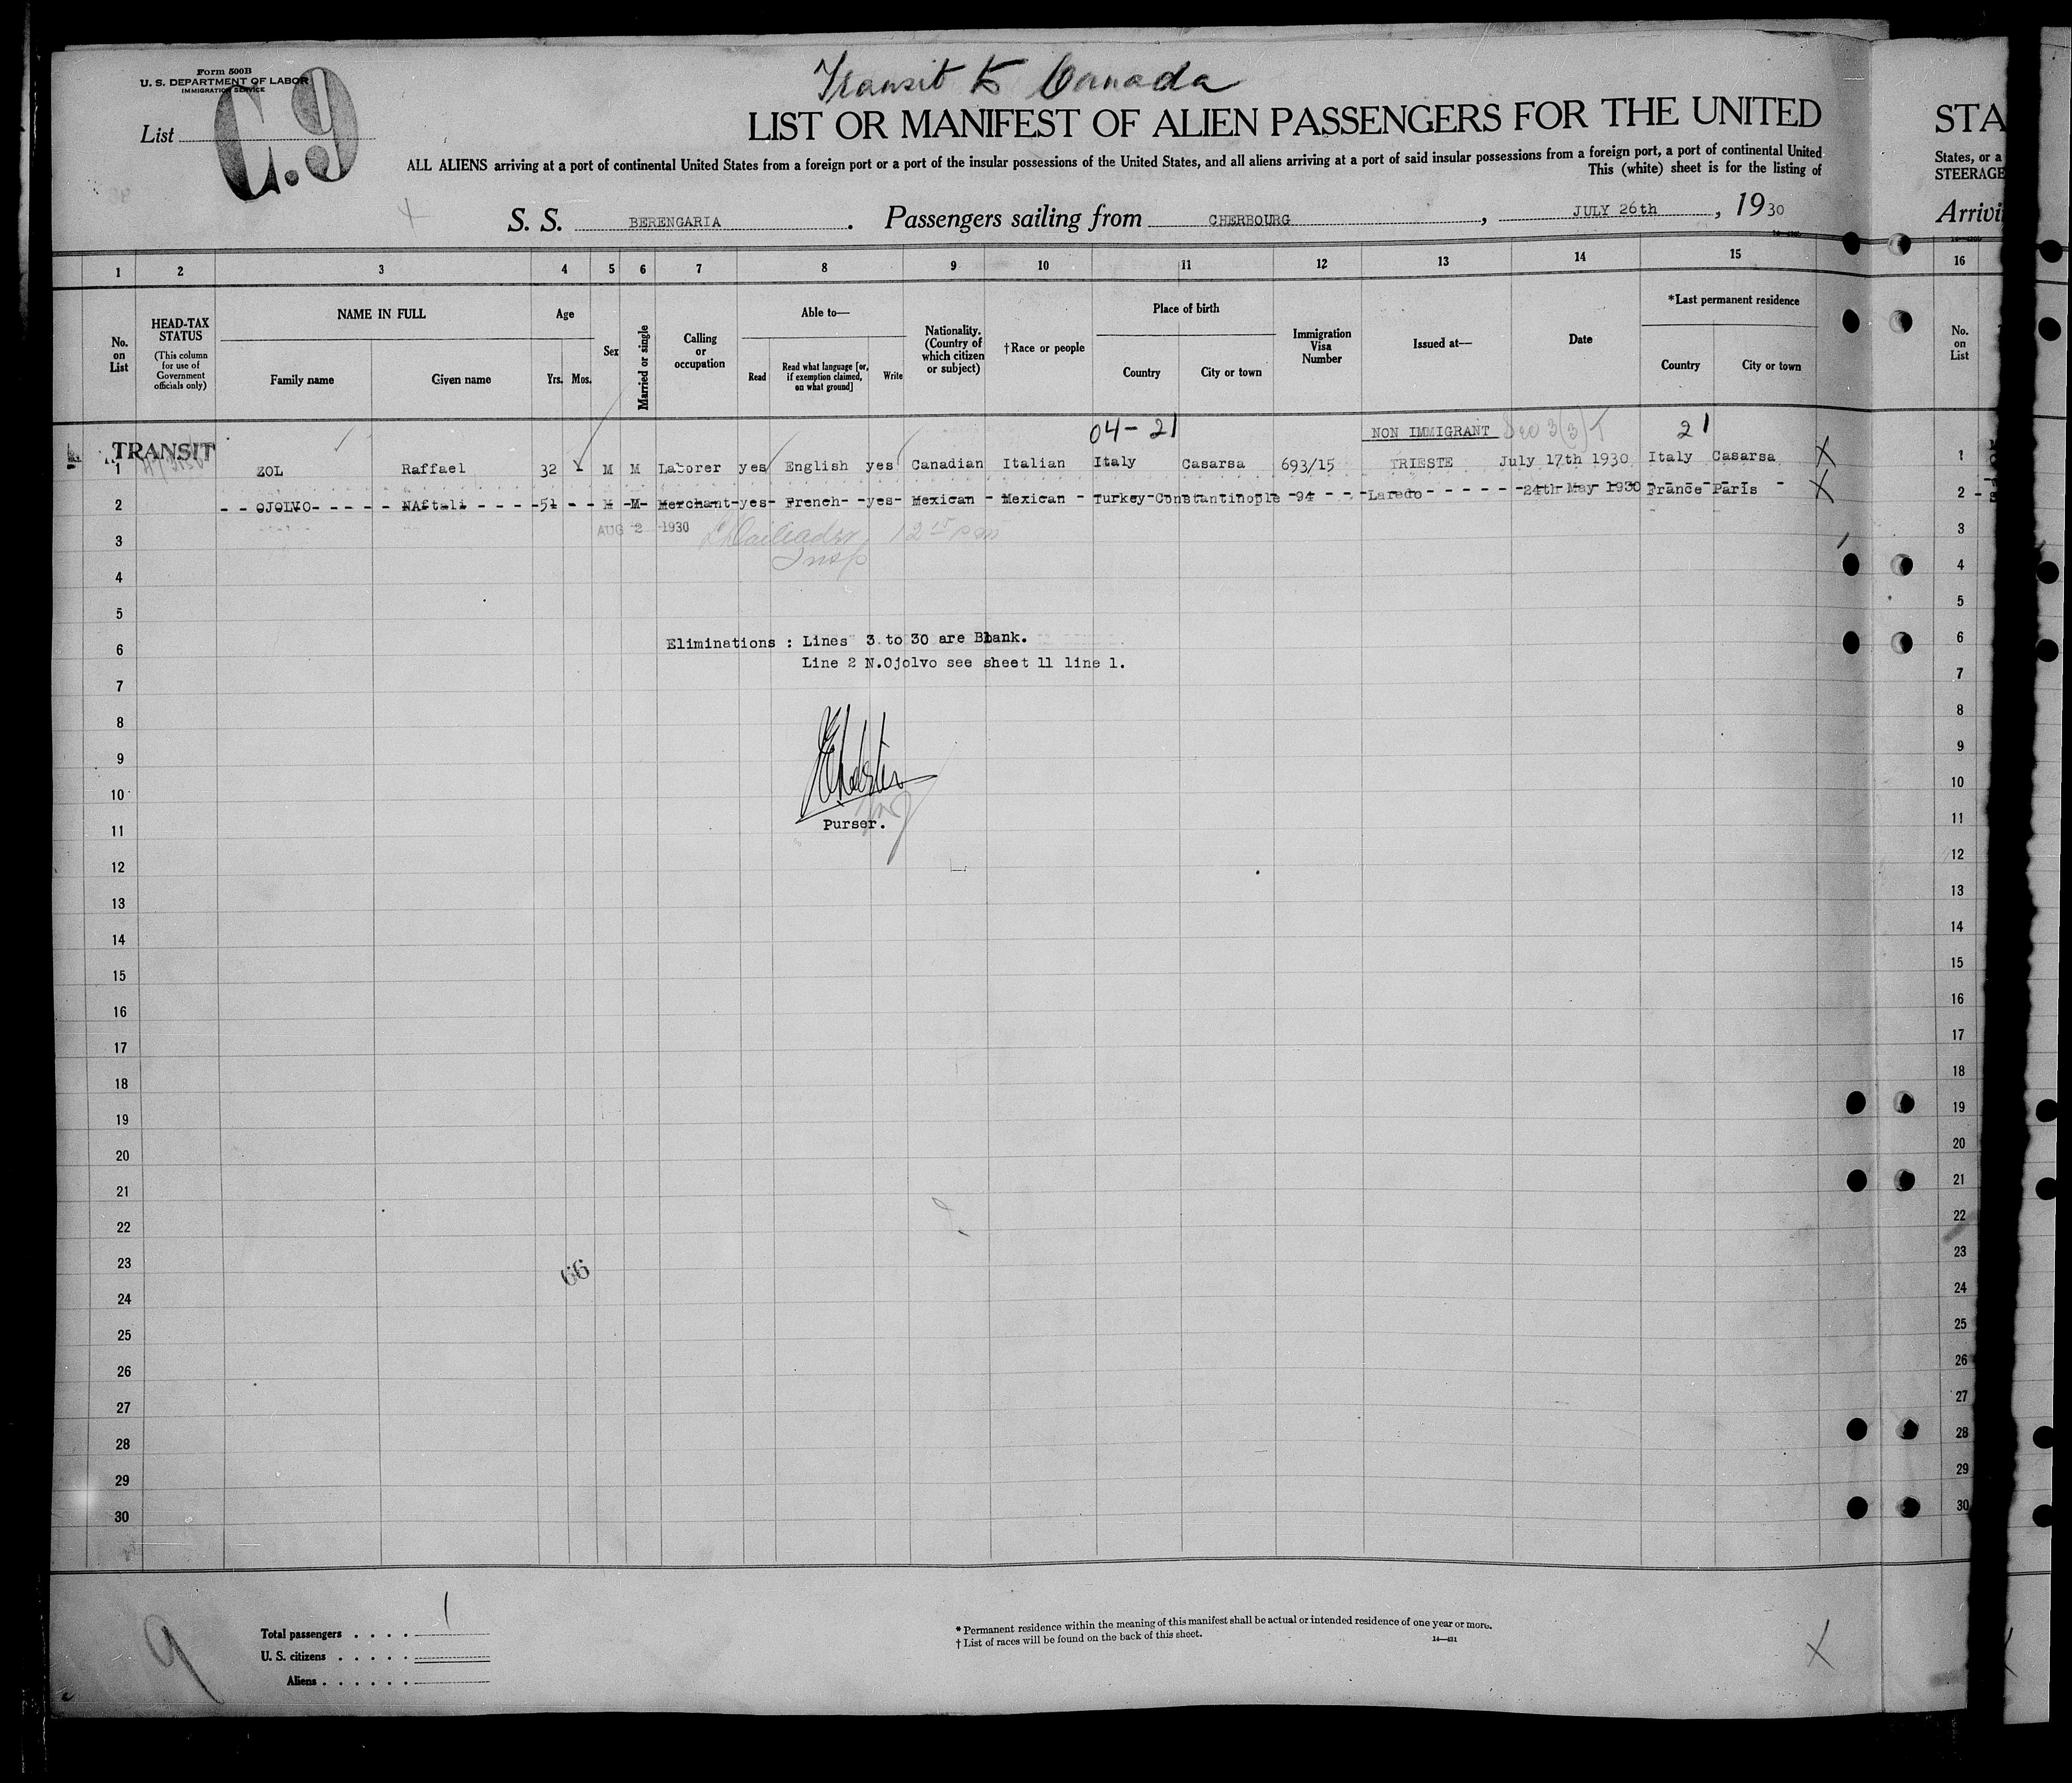 Form 500B
U. S. DEPARTMENT OF LABOR
IMMIGRATION SERVICE
List
C.9
Transit to Canada
LIST OR MANIFEST OF ALIEN PASSENGERS FOR THE UNITED
ALL ALIENS arriving at a port of continental United States from a foreign port or a port of the insular possessions of the United States, and all aliens arriving at a port of said insular possessions from a foreign port, a port of continental United
This (white) sheet is for the listing of
S. S. BERENGARIA . Passengers sailing from CHERBOURG , JULY 26th , 1930
STA
States, or a
STEERAGE
Arrivi
1 2 3 4 5 6 7 8 9 10 11 12 13 14 15 16
No. on List
HEAD-TAX STATUS
(This column for use of Government officials only)
NAME IN FULL
Family name Given name
Age
Yrs. Mos.
Sex
Married or single
Calling or occupation
Able to—
Read
Read what language [or, if exemption claimed, on what ground]
Write
Nationality. (Country of which citizen or subject)
†Race or people
Place of birth
Country City or town
Immigration Visa Number
Issued at—
Date
*Last permanent residence
Country City or town
No. on List
04-21 NON IMMIGRANT 21
TRANSIT
1 ZOL Raffael 32 M M Laborer yes English yes Canadian Italian Italy Casarsa 693/15 TRIESTE July 17th 1930 Italy Casarsa X 1
2 OJOLVO NAftali 51 M M Merchant yes French yes Mexican Mexican Turkey Constantinople 94 Laredo 24th May 1930 France Paris X 2
AUG 2 1930
Insp
3 3
4 4
5 5
6 6
Eliminations : Lines 3 to 30 are Blank.
Line 2 N.Ojolvo see sheet 11 line 1.
7 7
8 8
9 9
10 10
11 11
Purser.
12 12
13 13
14 14
15 15
16 16
17 17
18 18
19 19
20 20
21 21
22 22
23 23
66
24 24
25 25
26 26
27 27
28 28
29 29
30 30
9
Total passengers . . . . 1
U. S. citizens . . . . .
Aliens . . . . . .
* Permanent residence within the meaning of this manifest shall be actual or intended residence of one year or more.
† List of races will be found on the back of this sheet.
14—431
X